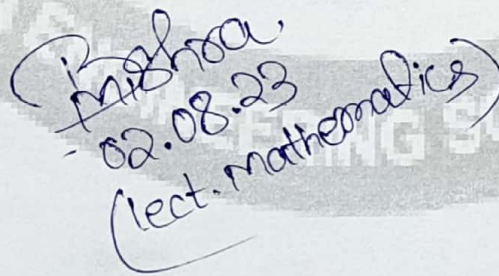 Mishra
02.08.23
(lect. Mathematics)